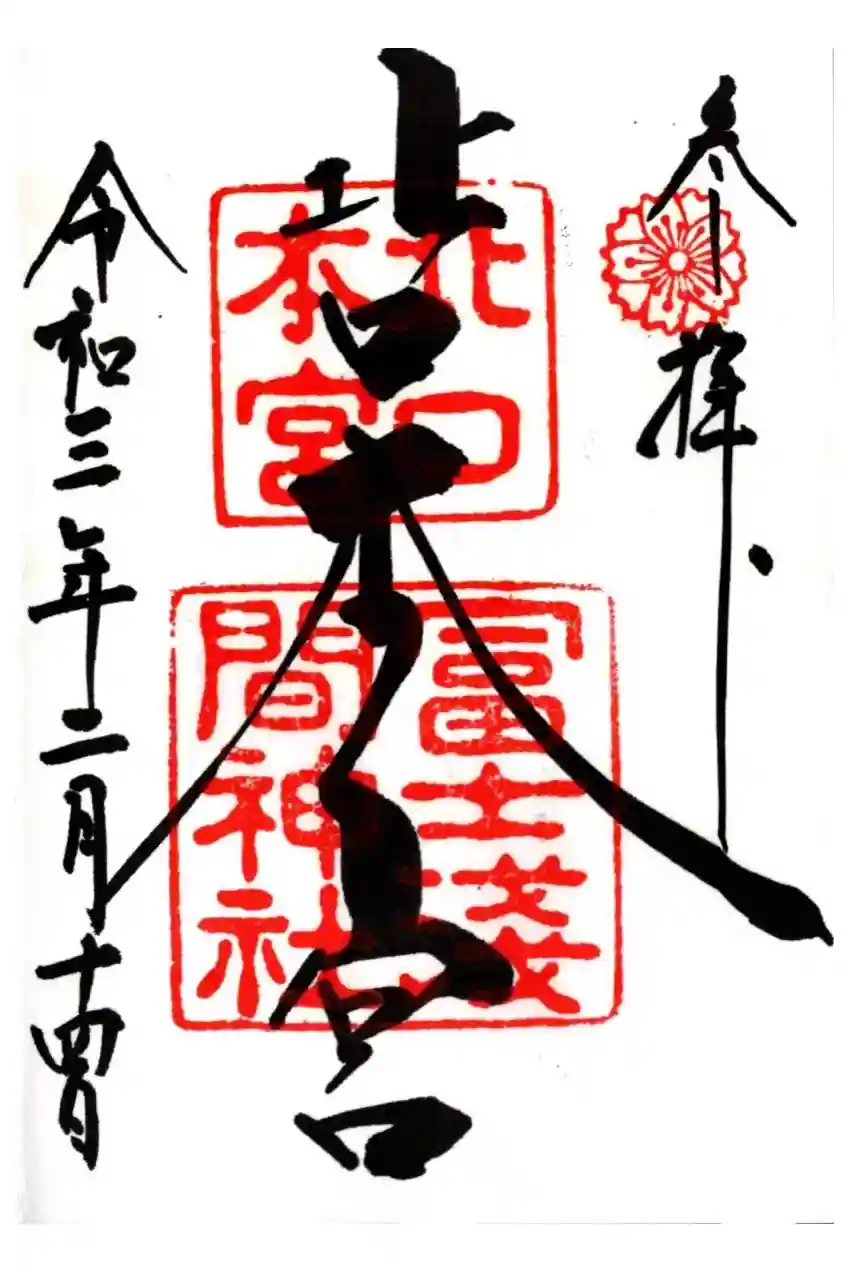 参拝
北口本宮
北口
本宮
冨士浅
間神社
令和三年二月十四日